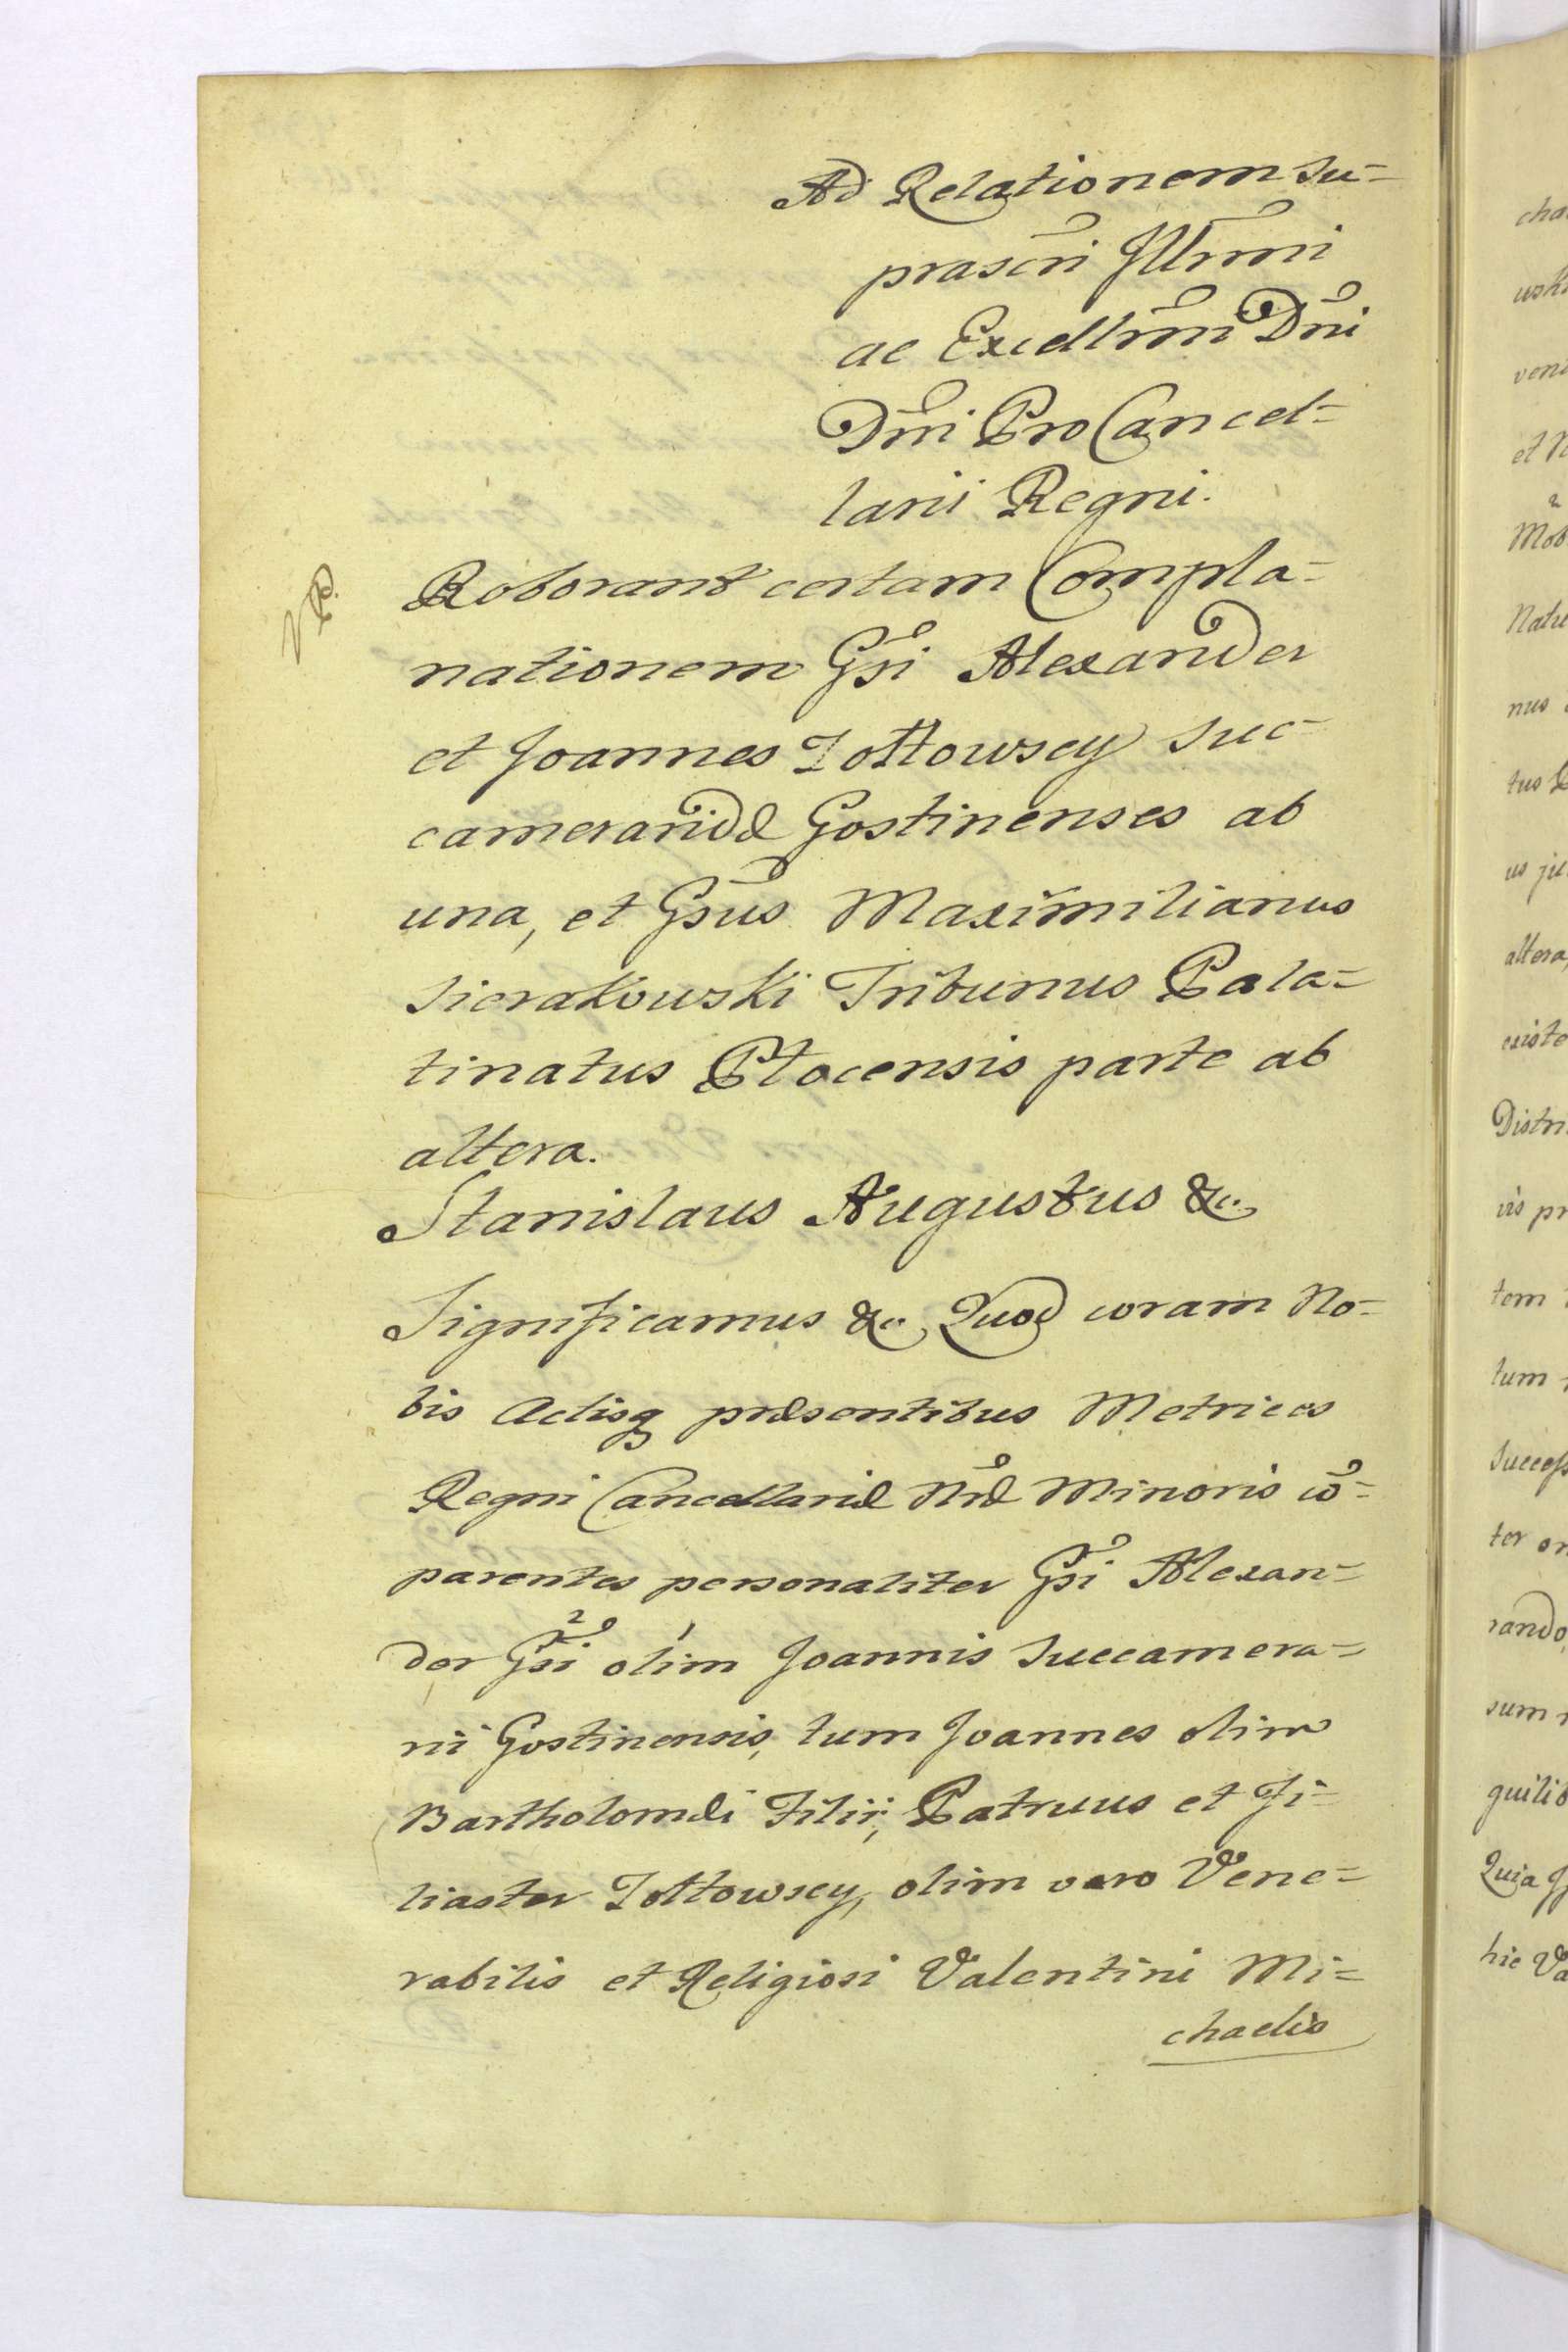 Ad Relationem su=
prascri Jllrmi
ac Excellrmi Dni
Dni ProCancel=
larii Regni.
Roborant certam Compla=
nationem Gsi Alexander
et Joannes Zottowscy Suc=
cameraridæ Gostinenses ab
una, et Gsus Maximilianus
Sierakowski Tribunus Pala=
tinatus Plocensis parte ab
altera.
Stanislaus Augustus &c.
Significamus &c. Quod coram No=
bis Actisq præsentibus Metrices
Regni Cancellariæ Nræ Minoris co=
parentes personaliter Gsi Alexan=
der Gsi olim Joannis Succamera=
rii Gostinensis, tum Joannes olim
Bartholomæi Filii, Patruus et Fi=
liaster Zottowscy, olim vero Vene=
rabilis et Religiosi Valentini Mi=
chaelis